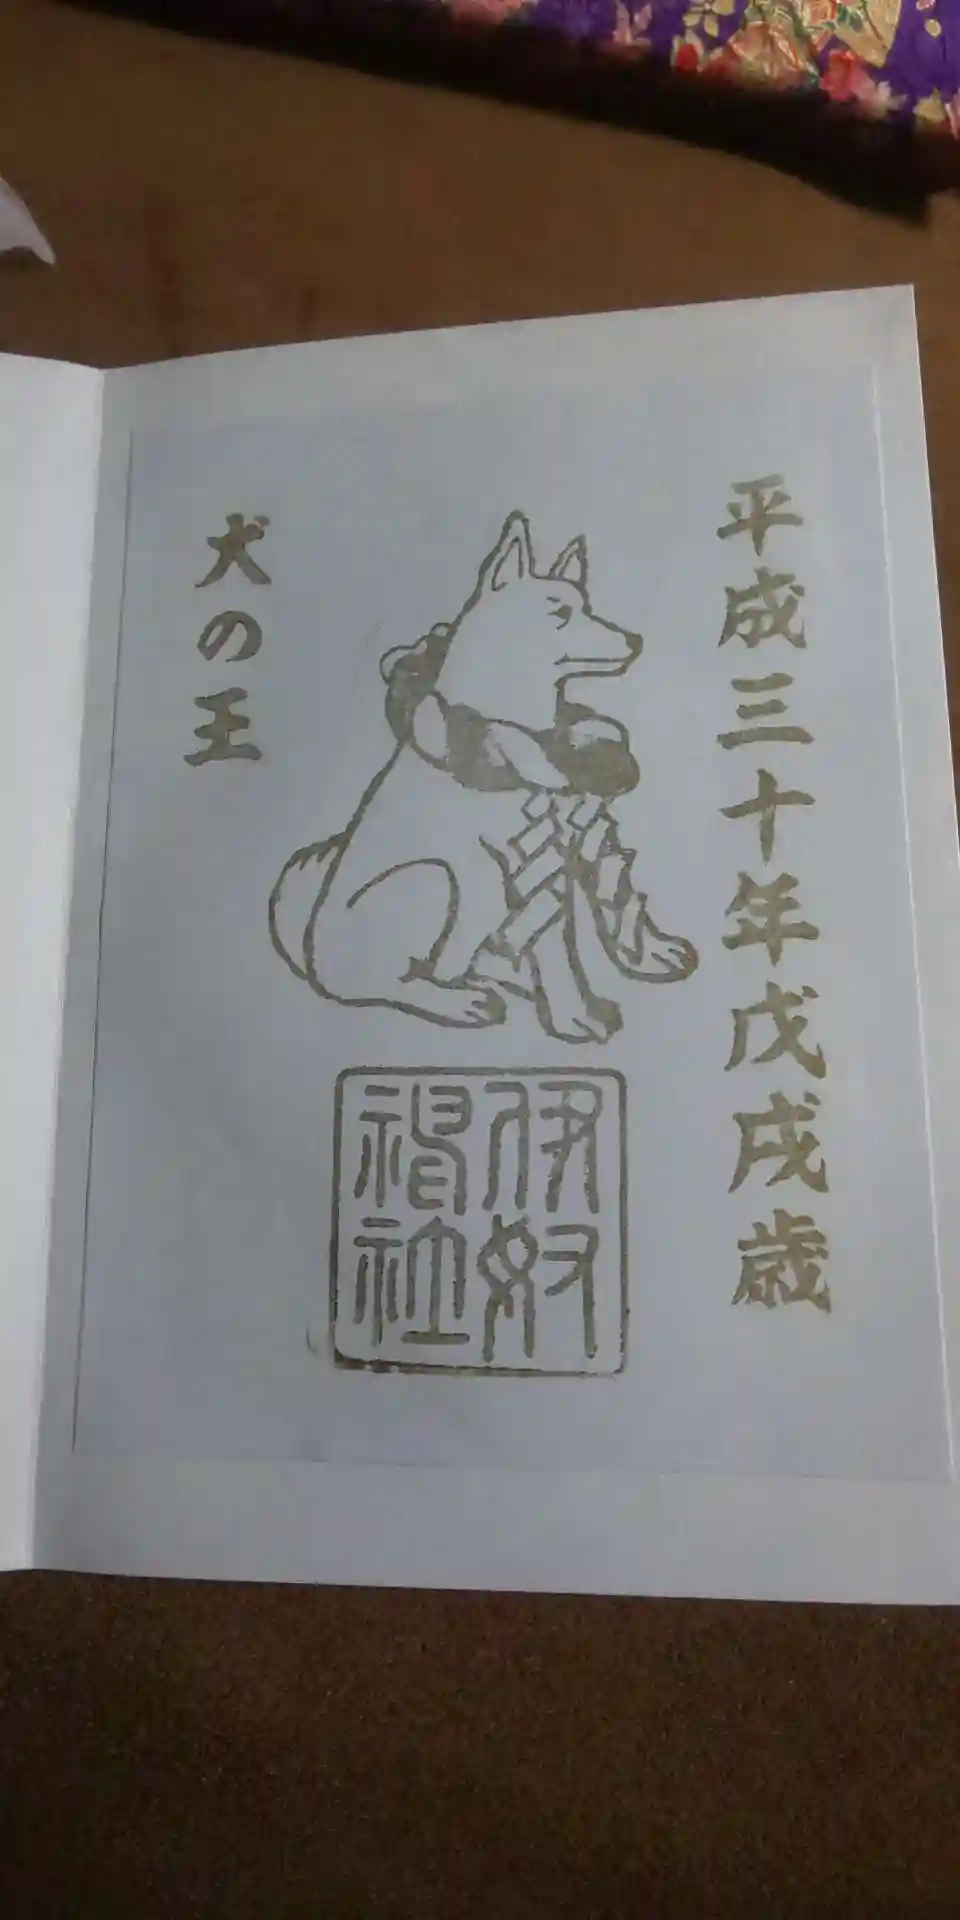 平成三十年戊戌歳
犬の王
伊奴
神社